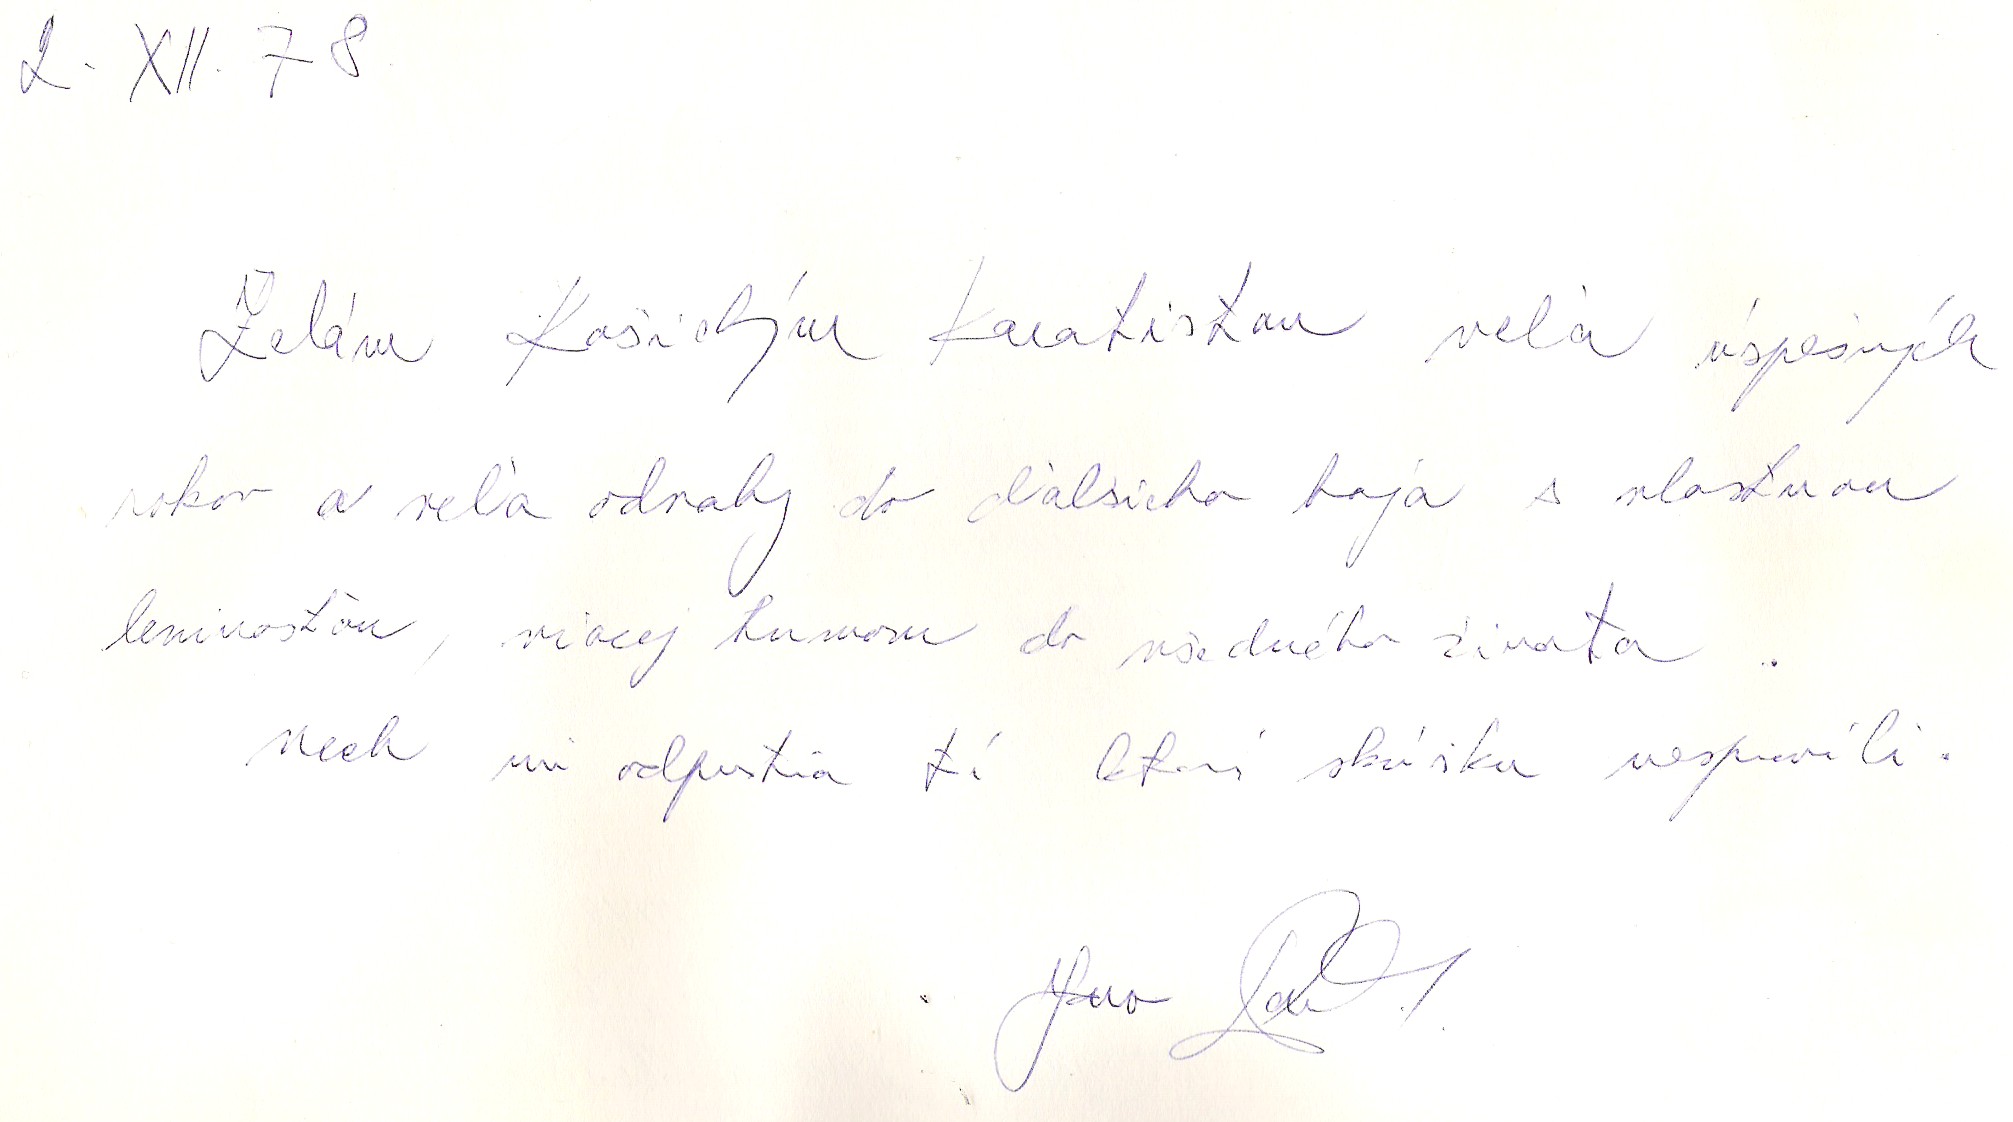 2. XII. 78.
Želám Košickým karatistom veľa úspešných
rokov a veľa odvahy do ďalšieho boja s vlastnou
lenivosťou, viacej humoru do všedného života.
Nech mi odpustia tí ktorí skúšku nespravili.